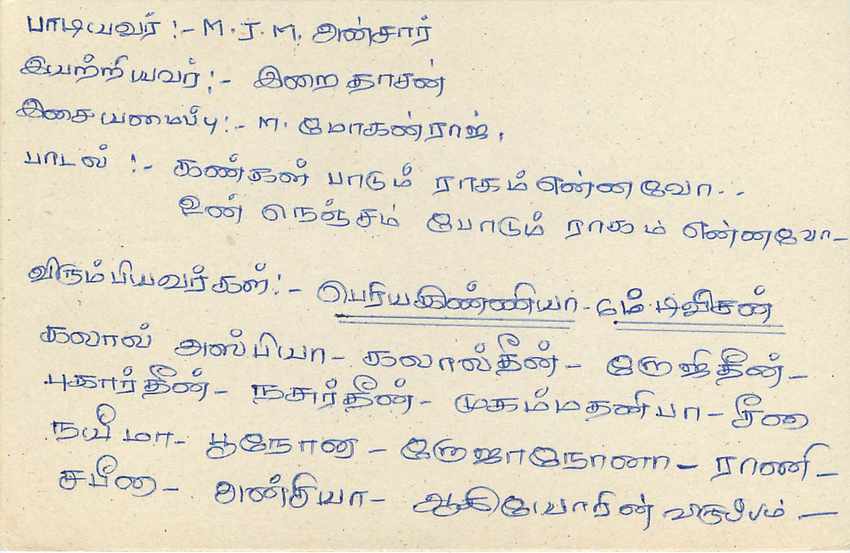 பாடியவர் :- M.J.M. அன்சார்
இயற்றியவர் :- இறை தாசன்
இசையமைப்பு :- M. மோகன்ராஜ்.
பாடல் :- கண்கள் பாடும் ராகம் என்னவோ..
உன் நெஞ்சம் போடும் ராகம் என்னவோ-
விரும்பியவர்கள் :- பெரியகிண்ணியா -
கலால் அஸ்பியா - கலால்தீன் -
புகார்தீன் - நசார்தீன் - முகம்மதனிபா -
நயீமா - பூநோனா - ராணி -
சபீனா - ஆகியோரின் விருப்பம். -